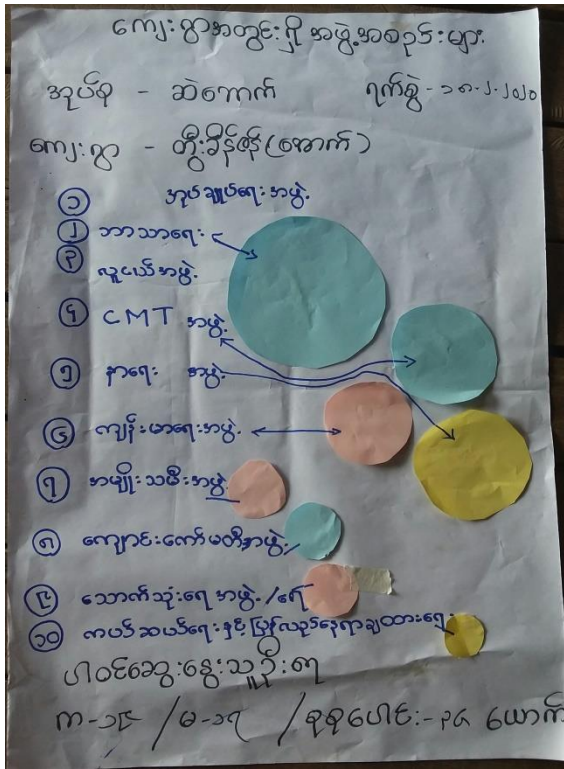 ကျေးရွာအတွင်းရှိ အဖွဲ့အစည်းများ
အုပ်စု - ဆဲကောက် ရက်စွဲ - ၁၈-၂-၂၀၂၀
ကျေးရွာ - တွီးခိန်ဇန် (အောက်)
၁ အုပ်ချုပ်ရေးအဖွဲ့
၂ ဘာသာရေး
၃ လူငယ်အဖွဲ့
၄ CMT အဖွဲ့
၅ နာရေး အဖွဲ့
၆ ကျန်းမာရေးအဖွဲ့
၇ အမျိုးသမီးအဖွဲ့
၈ ကျောင်းကော်မတီအဖွဲ့
၉ သောက်သုံးရေအဖွဲ့ /ရေ
၁၀ ကယ်ဆယ်ရေးနှင့်ပြန်လည်နေရာချထားရေး
ပါဝင်ဆွေးနွေးသူဦးရေ
ကျ-၁၉ / မ-၁၇ / စုစုပေါင်း - ၃၆ ယောက်